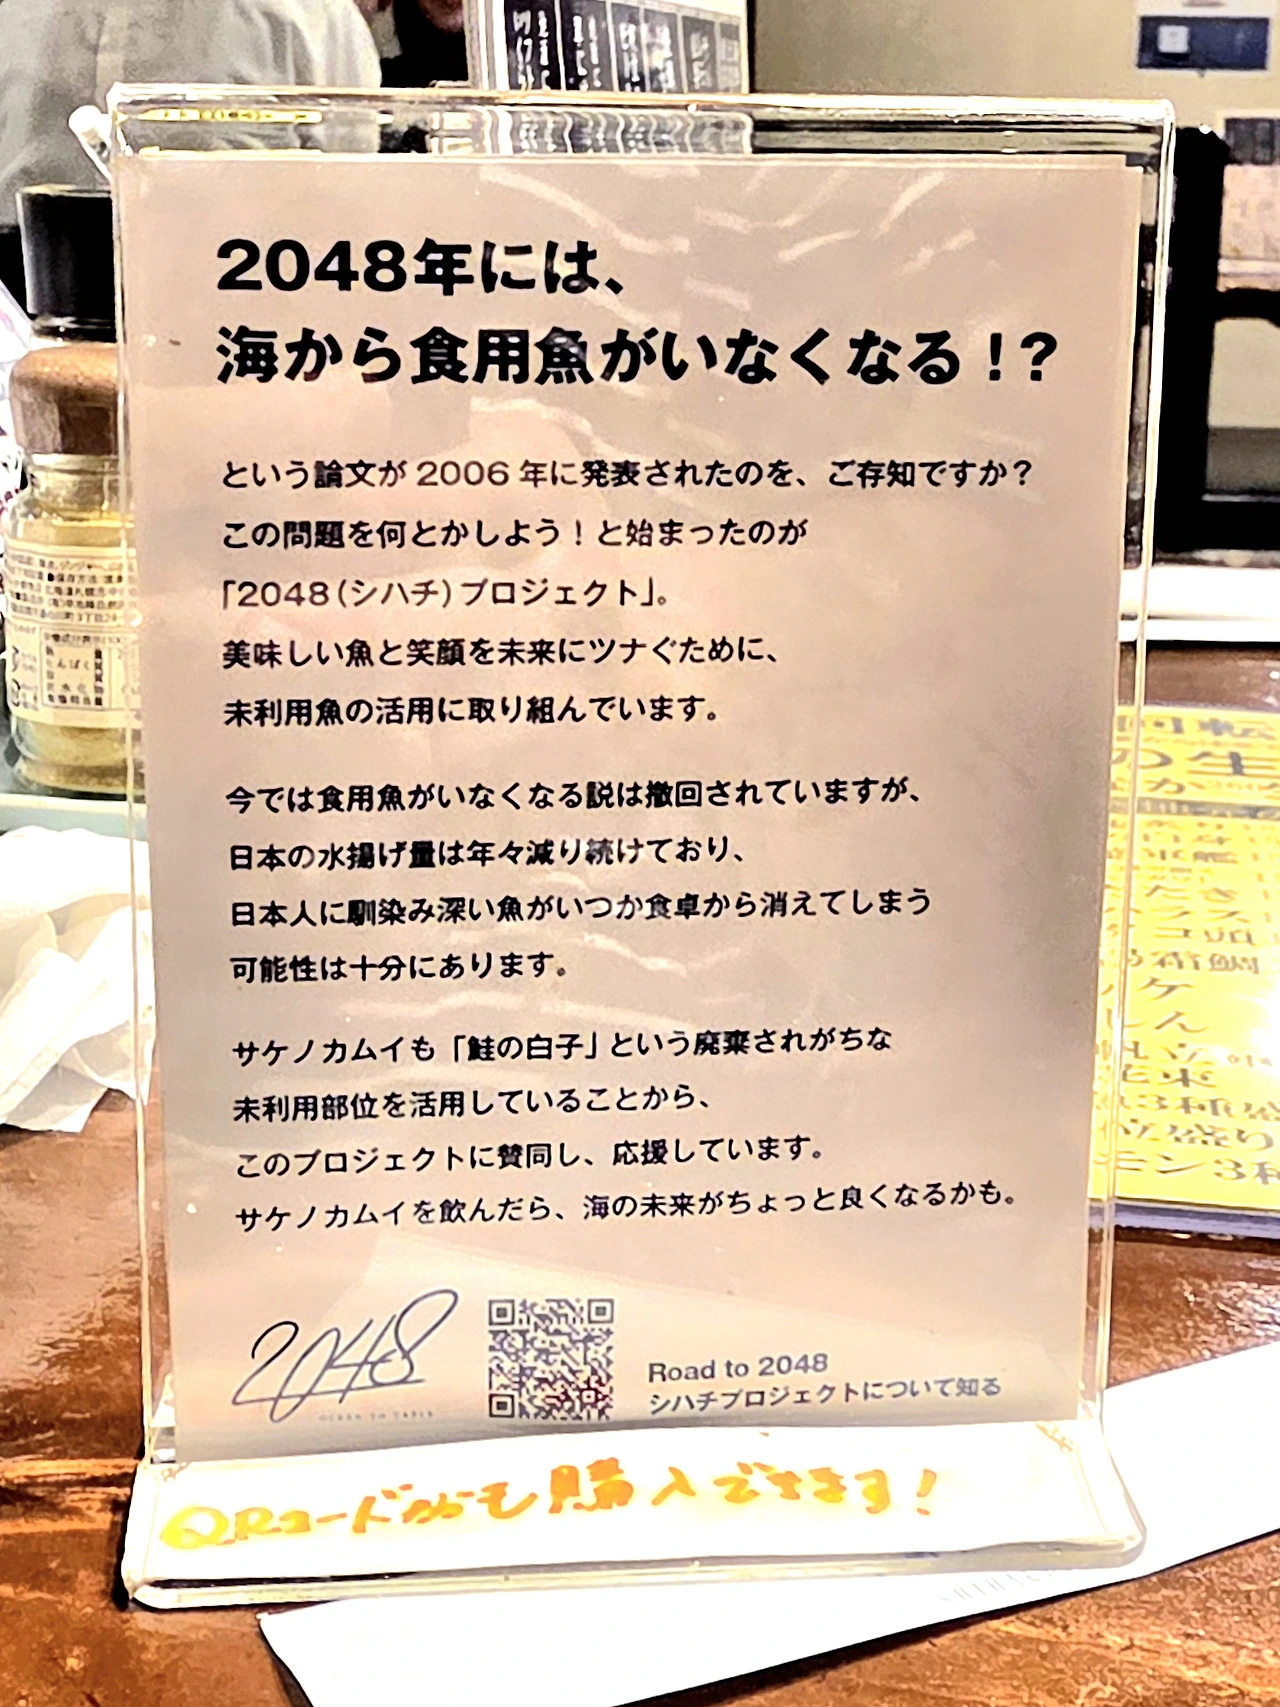 2048年には、
海から食用魚がいなくなる！?
という論文が 2006 年に発表されたのを、ご存知ですか？
この問題を何とかしよう！と始まったのが
「2048（シハチ）プロジェクト」。
美味しい魚と笑顔を未来にツナぐために、
未利用魚の活用に取り組んでいます。
今では食用魚がいなくなる説は撤回されていますが、
日本の水揚げ量は年々減り続けており、
日本人に馴染み深い魚がいつか食卓から消えてしまう
可能性は十分にあります。
サケノカムイも「鮭の白子」という廃棄されがちな
未利用部位を活用していることから、
このプロジェクトに賛同し、応援しています。
サケノカムイを飲んだら、海の未来がちょっと良くなるかも。
2048
OCEAN TO TABLE
Road to 2048
シハチプロジェクトについて知る
QRコードからも購入できます！